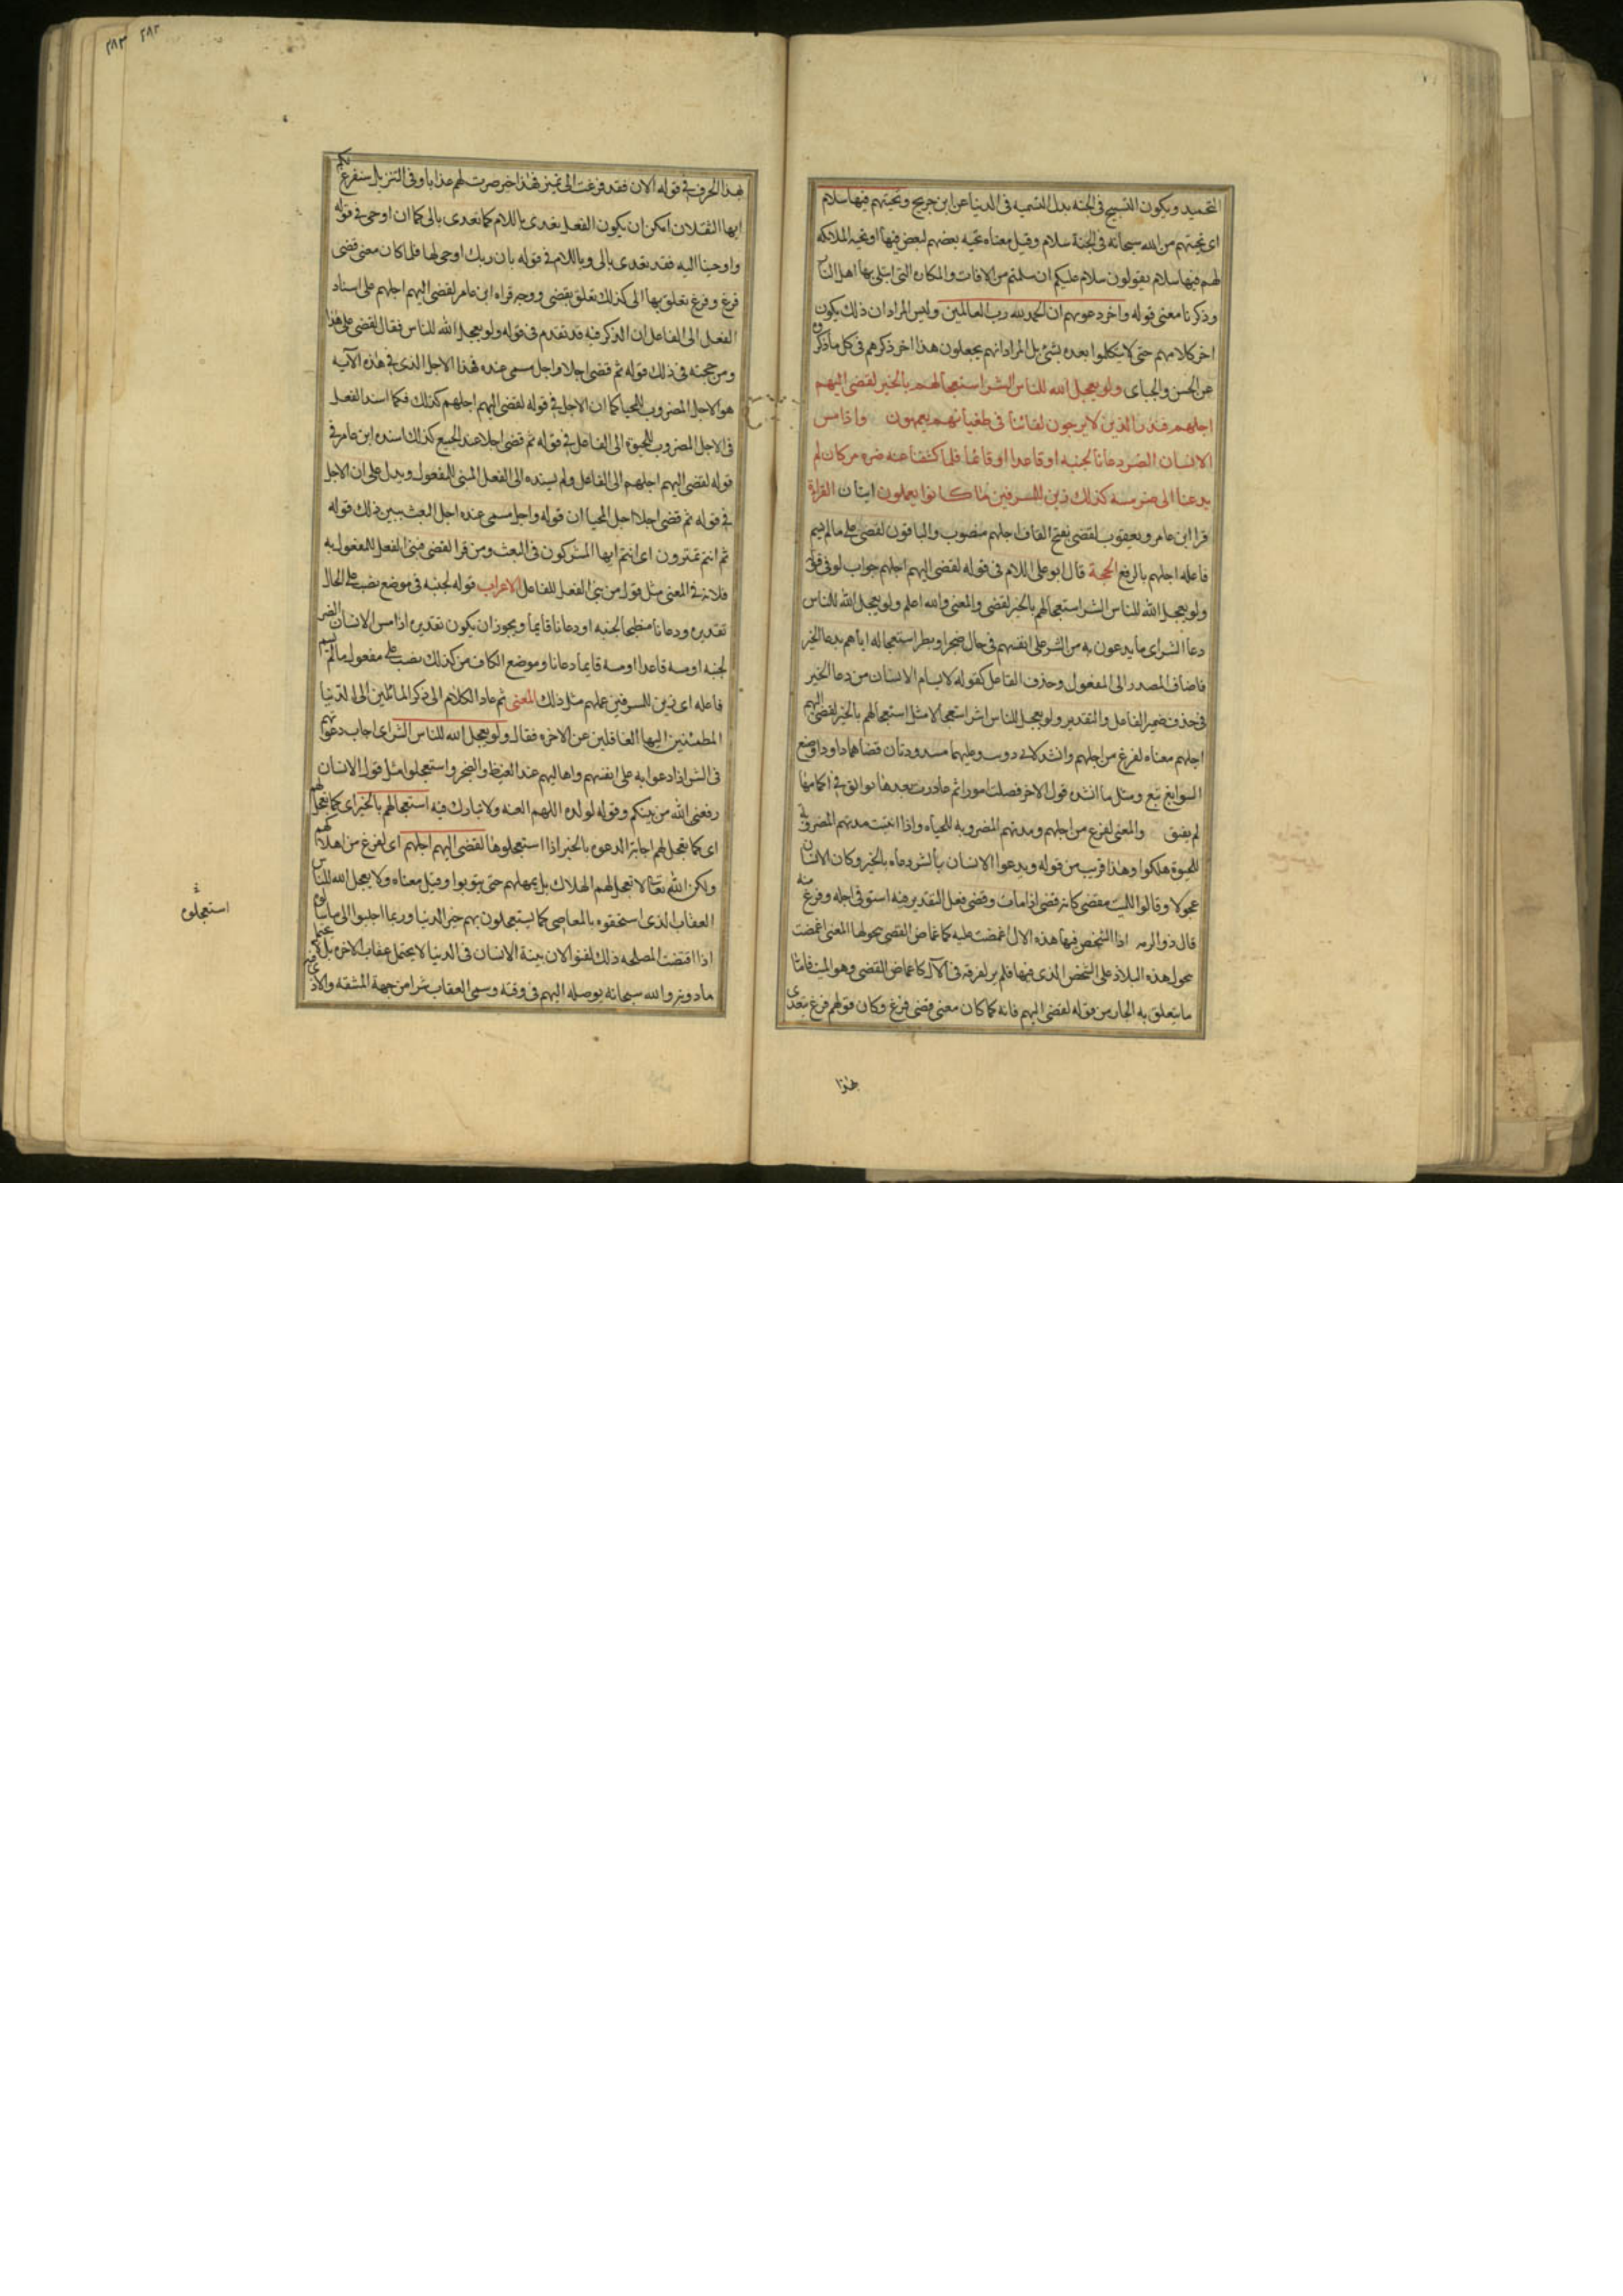 التحميد ويكون التسبيح فى الجنه بدل التسميه فى الدنيا عن ابن جريج وتحيتهم فيها سلام
اى تحيتهم من الله سبحانه فى الجنة سلام وقيل معناه تحيه بعضهم لبعض فيها او تحيه الملائكه
لهم فيها سلام يقولون سلام عليكم اى سلمتم من الافات والمكاره التى ابتلى بها اهل النار
وذكرنا معنى قوله واخر دعويهم ان الحمد لله رب العالمين وليس المراد ان ذلك يكون
اخر كلامهم حتى لا يتكلموا بعده بشئ بل المراد انهم يجعلون هذا اخر ذكرهم فى كل ما ذكروه
عن الحسن والجباى ولو يعجل الله للناس الشر استعجالهم بالخير لقضى اليهم
اجلهم فنذر الذين لا يرجون لقائنا فى طغيانهم يعمهون واذا مس
الانسان الضر دعانا لجنبه او قاعدا او قائما فلما كشفنا عنه ضره مر كان لم
يدعنا الى ضر مسه كذلك زين للمسرفين ما كانوا يعملون ايتان القراة
قرا ابن عامر ويعقوب لقضى بفتح القاف اجلهم منصوب والباقون لقضى على ما لم يسم
فاعله اجلهم بالرفع الحجة قال ابو على اللام فى قوله لقضى اليهم اجلهم جواب لو فى قوله
ولو يعجل الله للناس الشر استعجالهم بالخير لقضى والمعنى والله اعلم ولو يعجل الله للناس
دعا الشر اى ما يدعون به من الشر على انفسهم فى حال ضجر او بطر استعجاله اياهم بدعا الخير
فاضاف المصدر الى المفعول وحذف الفاعل كقوله لا يسام الانسان من دعا الخير
فى حذف ضمير الفاعل والتقدير ولو يعجل الله للناس الشر استعجالا مثل استعجالهم بالخير لقضى اليهم
اجلهم معناه لفرغ من اجلهم وانشد لابى ذويب وعليهما مسرودتان قضاهما داود او صنع
السوابغ تبع ومثل ما انشده قول الاخر قضيت امورا ثم غادرت بعدها بوائق فى اكمامها
لم تفتق والمعنى لفرغ من اجلهم ومدتهم المضروبه للحياه واذا انتهت مدتهم المضروبه
للحيوة هلكوا وهذا قريب من قوله ويدعوا الانسان بالشر دعاه بالخير وكان الانسان
عجولا وقالوا للميت مقضى كانه قضى اذا مات وقضى فعل التقدير فيه استوفى اجله وفرغ منه
قال ذو الرمه اذا الشخص فيها هذه الال اغمضت عليه كاغماض المقضى هجولها المعنى اغمضت
هجول هذه البلاد على الشخص الذى فيها فلم ير لغرقه فى الآل كاغماض المقضى وهو الميت فاما
ما يتعلق به الجار من قوله لقضى اليهم فانه كما كان معنى قضى فرغ وكان قولهم فرغ يتعدى
بهذا
بهذا الحرف فى قوله الان فقد فرغت الى نمير فهذا حين صرت لهم عذابا وفى التنزيل سنفرغ لكم
ايها الثقلان امكن ان يكون الفعل يتعدى باللام كما تعدى بالى كما ان اوحى فى قوله
واوحينا اليه فقد تعدى بالى وباللام فى قوله بان ربك اوحى لها فلما كان معنى قضى
فرغ وفرغ تعلق بها الى كذلك تعلق بقضى ووجه قراه ابن عامر لقضى اليهم اجلهم على اسناد
الفعل الى الفاعل ان الذكر فيه قد تقدم فى قوله ولو يعجل الله للناس فقال لقضى على هذا
ومن حجته فى ذلك قوله ثم قضى اجلا واجل مسمى عنده فهذا الاجل الذى فى هذه الآيه
هو الاجل المضروب للمحيا كما ان الاجل فى قوله لقضى اليهم اجلهم كذلك فكما اسند الفعل
فى الاجل المضروب للحيوة الى الفاعل فى قوله ثم قضى اجلا عند الجميع كذلك اسنده ابن عامر فى
قوله لقضى اليهم اجلهم الى الفاعل ولم يسنده الى الفعل المبنى للمفعول ويدل على ان الاجل
فى قوله ثم قضى اجلا اجل المحيا ان قوله واجل مسمى عنده اجل البعث يبين ذلك قوله
ثم انتم تمترون اى انتم ايها المشركون فى البعث ومن قرا لقضى فبنى الفعل للمفعول به
فلانه فى المعنى مثل قول من بنى الفعل للفاعل الاعراب قوله لجنبه فى موضع نصب على الحال
تقديره دعانا منبطحا لجنبه او دعانا قايما ويجوز ان يكون تقديره اذا مس الانسان الضر
لجنبه او مسه قاعدا او مسه قايما دعانا وموضع الكاف من كذلك نصب على مفعول ما لم يسم
فاعله اى زين للمسرفين عملهم مثل ذلك المعنى ثم عاد الكلام الى ذكر المائلين الى الدنيا
المطمئنين اليها الغافلين عن الاخره فقال ولو يعجل الله للناس الشر اى اجاب دعوتهم
فى الشر اذا دعوا به على انفسهم واهاليهم عند الغيظ والضجر واستعجلوا مثل قول الانسان
رفعنى الله من بينكم وقوله لولده اللهم العنه ولا تبارك فيه استعجالهم بالخير اى كما يعجل لهم
اى كما يعجل لهم اجابة الدعوه بالخير اذا استعجلوها لقضى اليهم اجلهم اى لفرغ من اهلاكهم
ولكن الله تعالى لا يعجل لهم الهلاك بل يمهلهم حتى يتوبوا وقيل معناه ولا يعجل الله للناس
العقاب الذى استحقوه بالمعاصى كما يستعجلون بهم خير الدنيا وربما اجيبوا الى ما سالوه
اذا اقتضت المصلحه ذلك لفنوا لان بنية الانسان فى الدنيا لا يحتمل عقاب الاخره بل
ما دونه والله سبحانه يوصله اليهم فى وقته وسمى العقاب شرا من جهة المشقه والاذى
استعجلوه
٢٨٢
٢٨٣